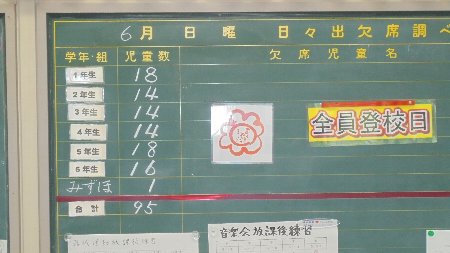 6月 日 曜 日々出欠席調べ
学年・組 児童数 欠席児童名
1年生 18
2年生 14
3年生 14
4年生 14
5年生 18
6年生 16
みずほ 1
合計 95
全員登校日
音楽会放課後練習